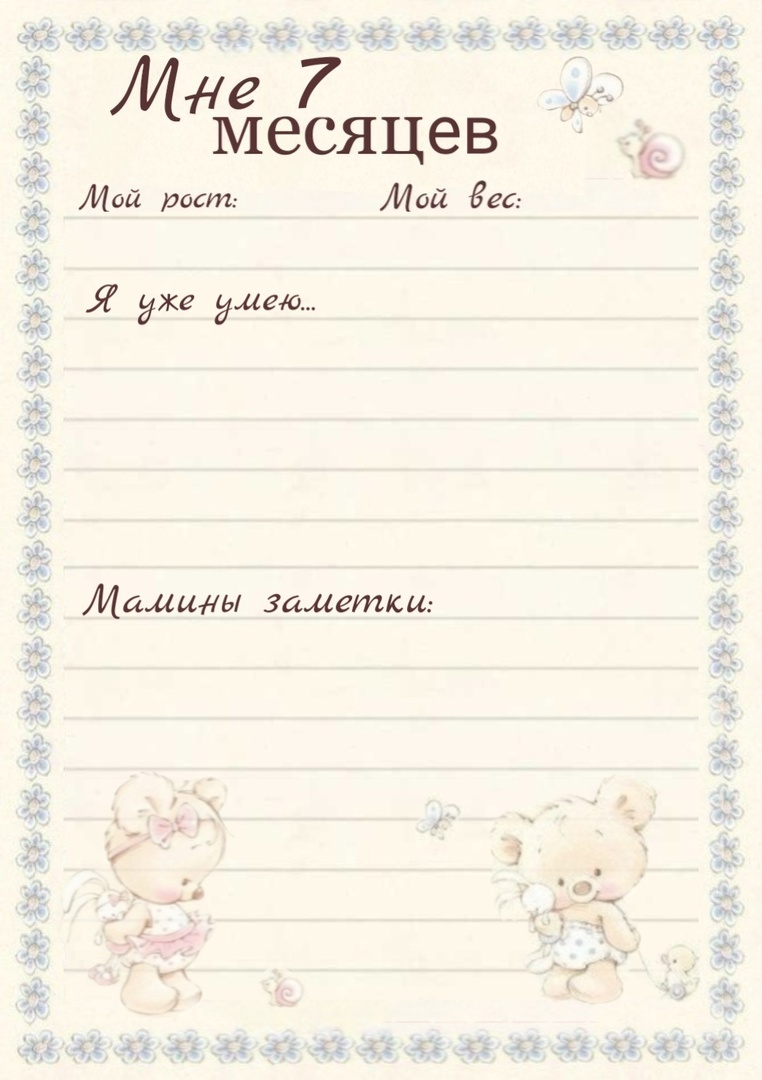 Мне 7
месяцев
Мой рост: Мой вес:
Я уже умею...
Мамины заметки: